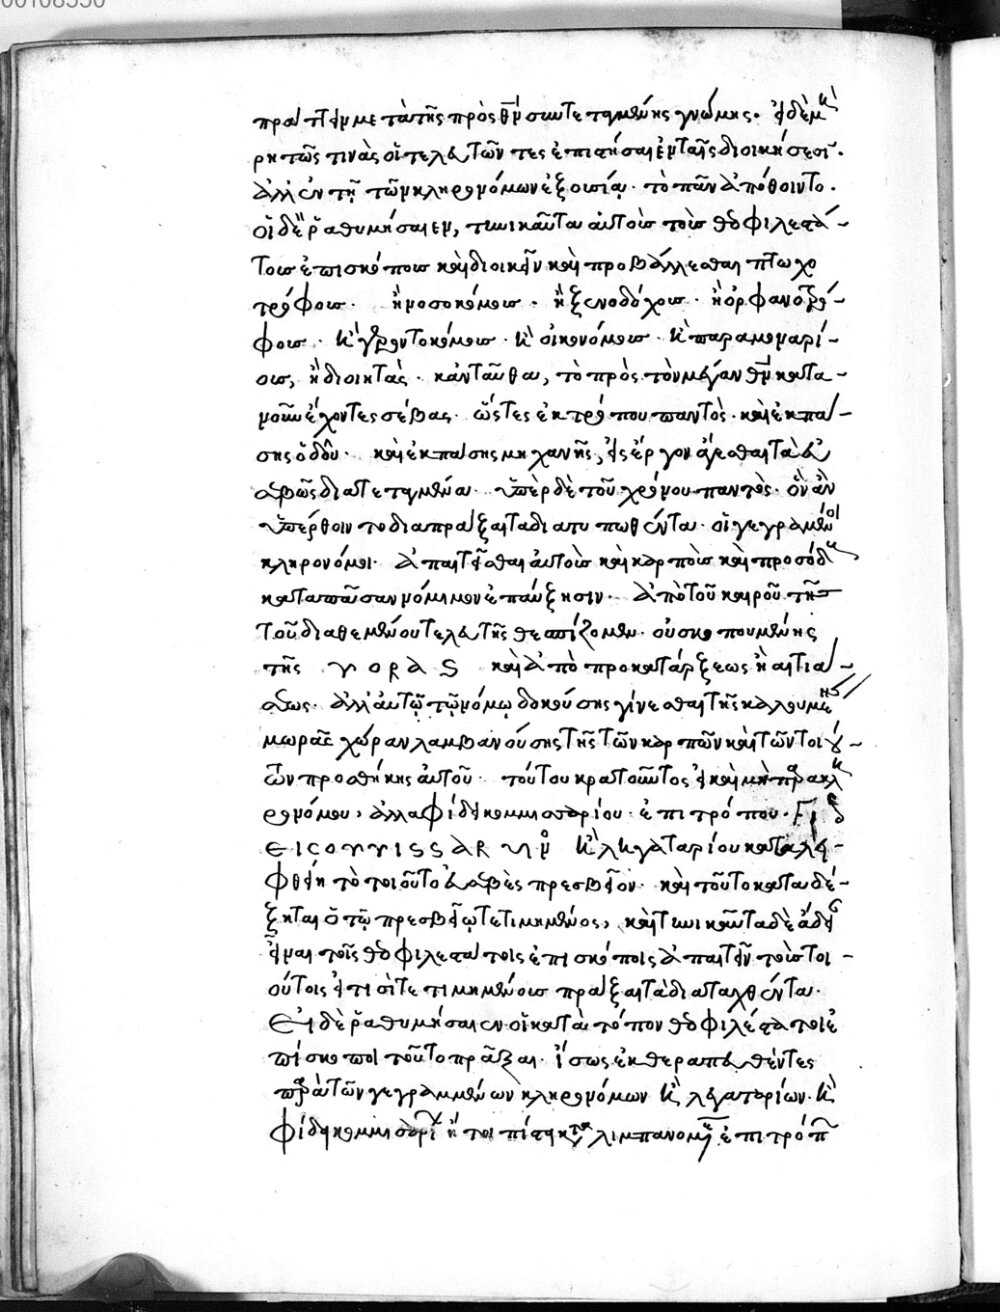 πράττειν μετὰ τῆς πρὸς θν συντεταγμένης γνώμης. εἰ δὲ μὴ
ρητῶς τινὰς οἱ τελευτῶντες ἐπιστήσαιεν ταῖς διοικήσεσι.
ἀλλ' ἐν τῇ τῶν κληρονόμων ἐξουσίᾳ. τὸ πᾶν ἀπόθοιντο.
οἱ δὲ ῥαθυμήσαιεν, τηνικαῦτα αὐτοῖς τοῖς θεοφιλεστά-
τοις ἐπισκόποις καὶ διοικεῖν καὶ προβάλλεσθαι πτωχο
τρόφοις. ἢ νοσοκόμοις. ἢ ξενοδόχοις. ἢ ὀρφανοτρό-
φοις. καὶ γεροντοκόμοις. καὶ οἰκονόμοις. καὶ παραμοναρί-
οις, ἢ διοικητὰς. κἀνταῦθα, τὸ πρὸς τὸν μέγαν θν κατα-
νοῦν ἔχοντες σέβας. ὥστε ἐκ τρόπου παντὸς. καὶ ἐκ πά-
σης ὁδοῦ. καὶ ἐκ πάσης μηχανῆς, εἰς ἔργον ἄγεσθαι τὰ εὐ
σεβῶς διατεταγμένα. ὑπὲρ δὲ τοῦ χρόνου παντὸς. ὃν ἂν
ὑπέρθοιντο διαπράξαι τὰ διατυπωθέντα. οἱ γεγραμμένοι
κληρονόμοι. ἀπαιτεῖσθαι αὐτοὺς καὶ καρποὺς καὶ προσόδους
κατὰ πᾶσαν νόμιμον ἐπαύξησιν. ἀπὸ τοῦ καιροῦ τῆς
τοῦ διαθεμένου τελευτῆς θεσπίζομεν. οὐ σκοπουμένης
τῆς γορας καὶ ἀπὸ προκατάρξεως ἢ αἰτιά-
σεως. ἀλλ' αὐτῷ τῷ νόμῳ δοκούσης γίνεσθαι τῆς καλουμένης
μωρας χώραν λαμβανούσης τῆς τῶν καρπῶν καὶ τῶν τοιού-
των προσθήκης αὐτοῦ. τούτου κρατοῦντος εἰ καὶ μὴ παρὰ κλη
ρονόμου, ἀλλὰ φιδεικομμισσαρίου. ἐπιτρόπου. Fιδ
εicοννιssαRην καὶ ληγαταρίου καταλει-
φθείη τὸ τοιοῦτο εὐσεβὲς πρεσβεῖον. καὶ τοῦτο καταδέ-
ξηται ὁ τῷ πρεσβείῳ τετιμημένος, καὶ τηνικαῦτα δὲ ἄδει
εἶναι τοῖς θεοφιλεστάτοις ἐπισκόποις ἀπαιτεῖν τοὺς τοι-
ούτοις ἔτι σὶ τετιμημένους πράξαι τὰ διαταχθέντα.
Εἰ δὲ ῥαθυμήσαιεν οἱ κατὰ τόπον θεοφιλέστατοι ἐ
πίσκοποι τοῦτο πρᾶξαι. ἴσως ἐκθεραπευθέντες
παρὰ τῶν γεγραμμένων κληρονόμων καὶ λεγαταρίων. καὶ
φιδηκομμισσαρι ἤτοι πίστει καταλιμπανομένη ἐπιτρόπ